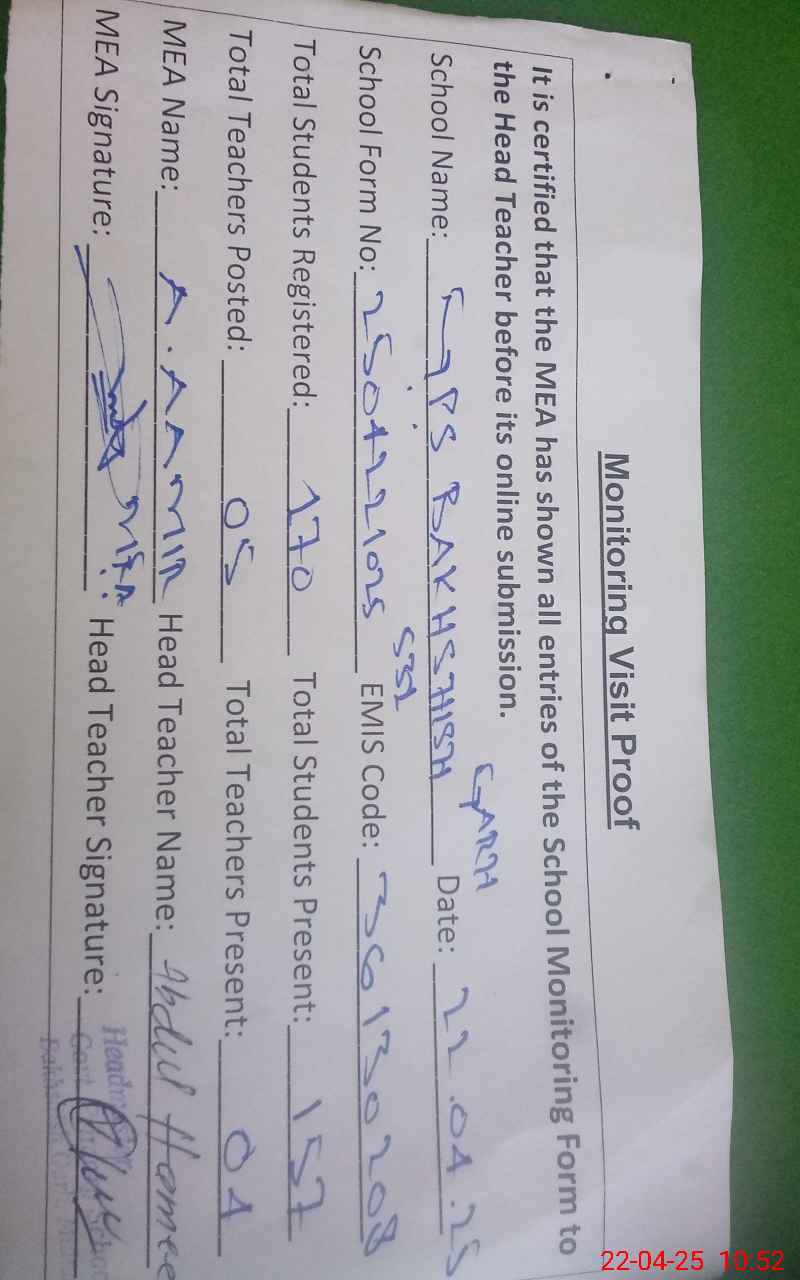 Monitoring Visit Proof
It is certified that the MEA has shown all entries of the School Monitoring Form to
the Head Teacher before its online submission.
GARH
School Name: GPS BAKHSHISH Date: 22.04.25
5352
School Form No: 2504221025 EMIS Code: 36130208
Total Students Registered: 170 Total Students Present: 157
Total Teachers Posted: 05 Total Teachers Present: 04
MEA Name: A. AAMIR Head Teacher Name: Abdul Hameed
MEA Signature: MEA Head Teacher Signature:
22-04-25 10:52